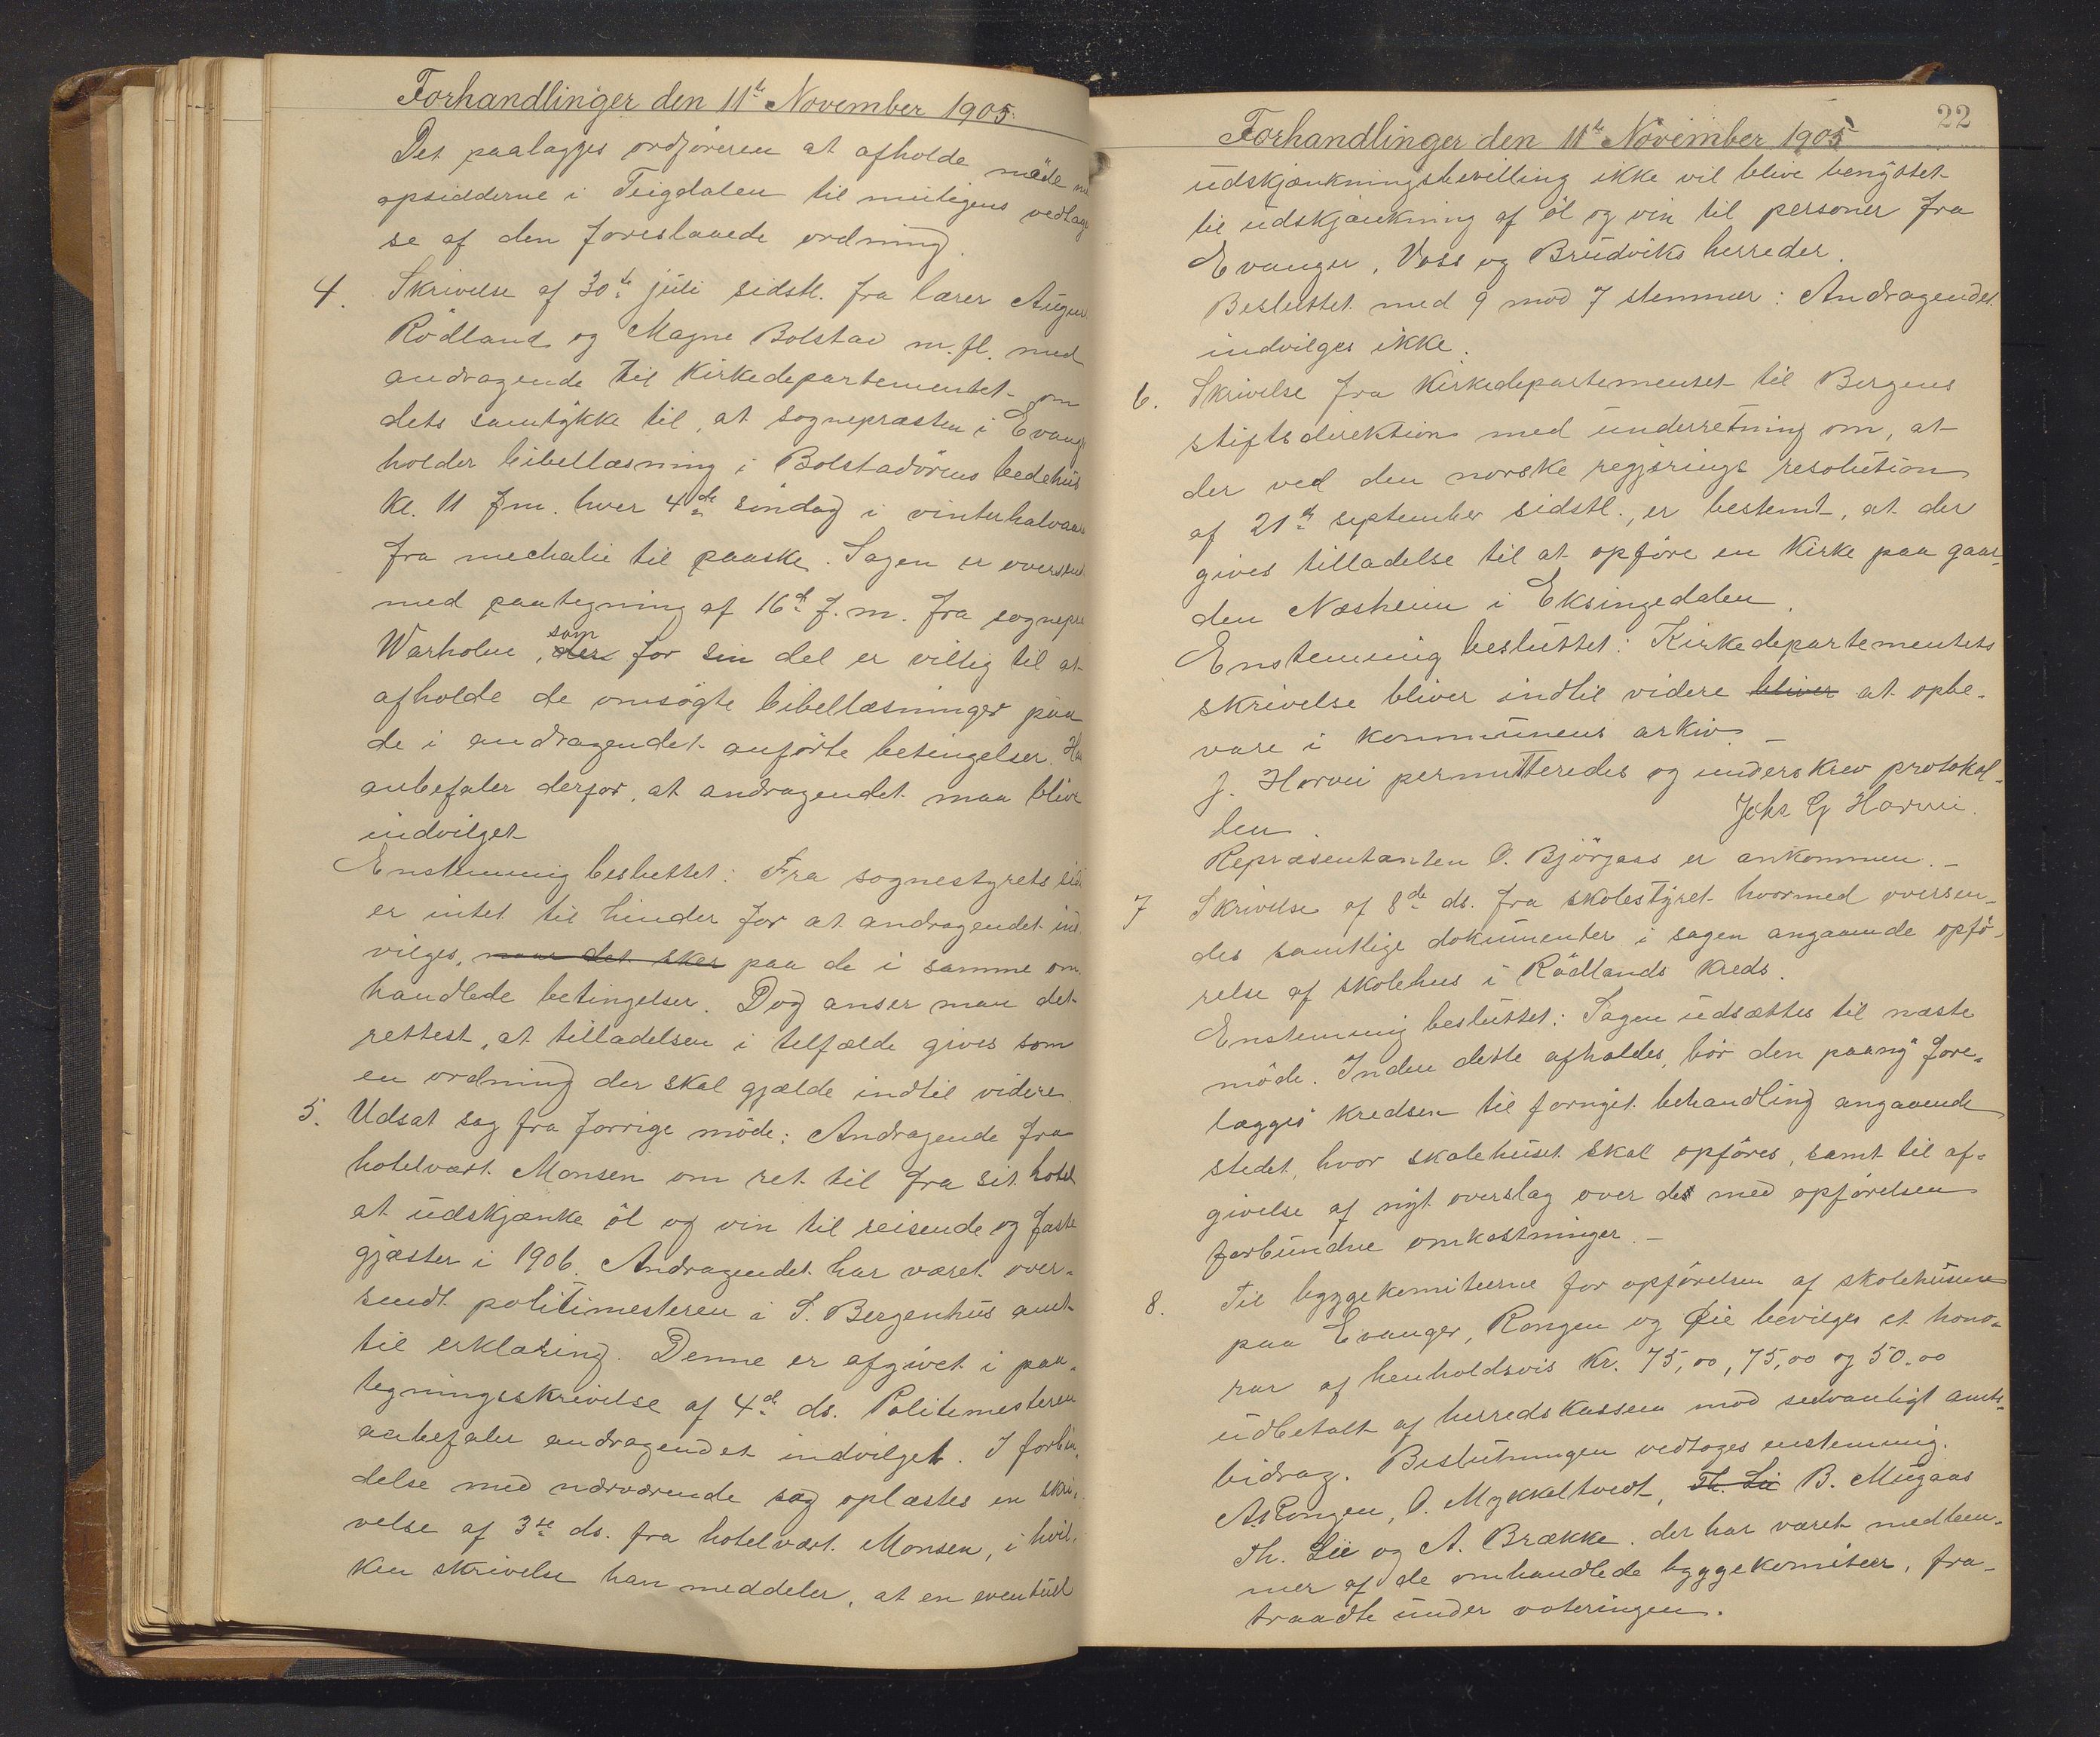 Forhandlinger den 11te November 1905.
Det paalægges ordføreren at afholde møde
opsidderne i Teigdalen til muligens vedtagel
se af den foreslaaede ordning.
4. Skrivelse af 30te juli sidstl. fra lærer August
Rödland og Magne Bolstad m. fl. med
andragende til Kirkedepartementet om
dets samtykke til, at sognepræsten i Evang
holder bibellæsning i Bolstadörens bedehus
Kl. 11 fm. hver 4de söndag i vinterhalvaar
fra mechalie til paaske. Sagen er oversend
med paategning af 16de f. m. fra sognepr
Warholm, der som for sin del er villig til at
afholde de omsögte bibellæsninger paa
de i andragendet anförte betingelser. Han
anbefaler derfor, at andragendet maa blive
indvilget
Enstemmig besluttet: Fra sognestyrets side
er intet til hinder for at andragendet ind
vilges, naar det sker paa de i samme om
handlede betingelser. Dog anser man det
rettest, at tilladelsen i telfælde gives som
en ordning der skal gjælde indtil videre.
5. Udsat sag fra forrige möde: Andragende fra
hotelvært Monsen om ret til fra sit hotel
at udskjænke öl og vin til reisende og faste
gjæster i 1906. Andragendet har været over-
sendt politimesteren i S. Bergenhus amt
til erklæring. Denne er afgivet i paa-
tegningsskrivelse af 4de ds. Politimesteren
anbefaler andragendet indvilget. I forbin-
delse med nærværende sag oplæstes en skri-
velse af 3die ds. fra hotelvært Monsen, i hvil-
ken skrivelse han meddeler, at en eventuel
22
Forhandlinger den 11te November 1905
udskjænkningsbevilling ikke vil blive benyttet
til udskjænkning af öl og vin til personer fra
Evanger, Voss og Brudviks herreder.
Besluttet med 9 mod 7 stemmer: Andragendet
indvilges ikke.
6. Skrivelse fra Kirkedepartementet til Bergens
stiftsdirektion med underretning om, at
der ved den norske regjerings resolution
af 21de september sidstl., er bestemt, at der
gives tilladelse til at opföre en Kirke paa gaar-
den Næsheim i Eksingedalen.
Enstemmig besluttet: Kirkedepartementets
skrivelse bliver indtil videre bliver at opbe-
vare i kommunens arkiv. –
J. Horvei permitteredes og underskrev protokol-
len.
Johs G Horvei.
Repræsentanten O. Björgaas er ankommen. –
7 Skrivelse af 8de ds. fra skolestyret hvormed oversen-
des samtlige dokumenter i sagen angaaende opfö-
relse af skolehus i Rödlands Kreds.
Enstemmig besluttet: Sagen udsættes til næste
möde. Inden dette afholdes, bör den paany fore-
lægges kredsen til fornyet behandling angaaende
stedet, hvor skolehuset skal opföres, samt til af-
givelse af nyt overslag over de med opförelsen
forbundne omkostninger. –
8. Til byggekomiteerne for opförelsen af skolehusene
paa Evanger, Rongen og Øie bevilges et hono-
rar af henholdsvis Kr. 75,00, 75,00 og 50,00
udbetalt af herredskassen mod sedvanligt amts-
bidrag. Beslutningen vedtoges enstemmig.
A. Rongen, O. Mykkeltvedt, Th. Lie B. Mügaas
Th. Lie og A. Brække, der har været medlem-
mer af de omhandlede byggekomiteer, fra-
traadte under voteringen.